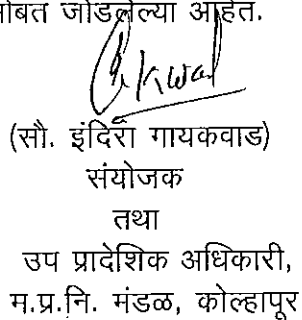 सोबत जोडलेल्या आहेत.
(सौ. इंदिरा गायकवाड)
संयोजक
तथा
उप प्रादेशिक अधिकारी,
म.प्र.नि. मंडळ, कोल्हापूर